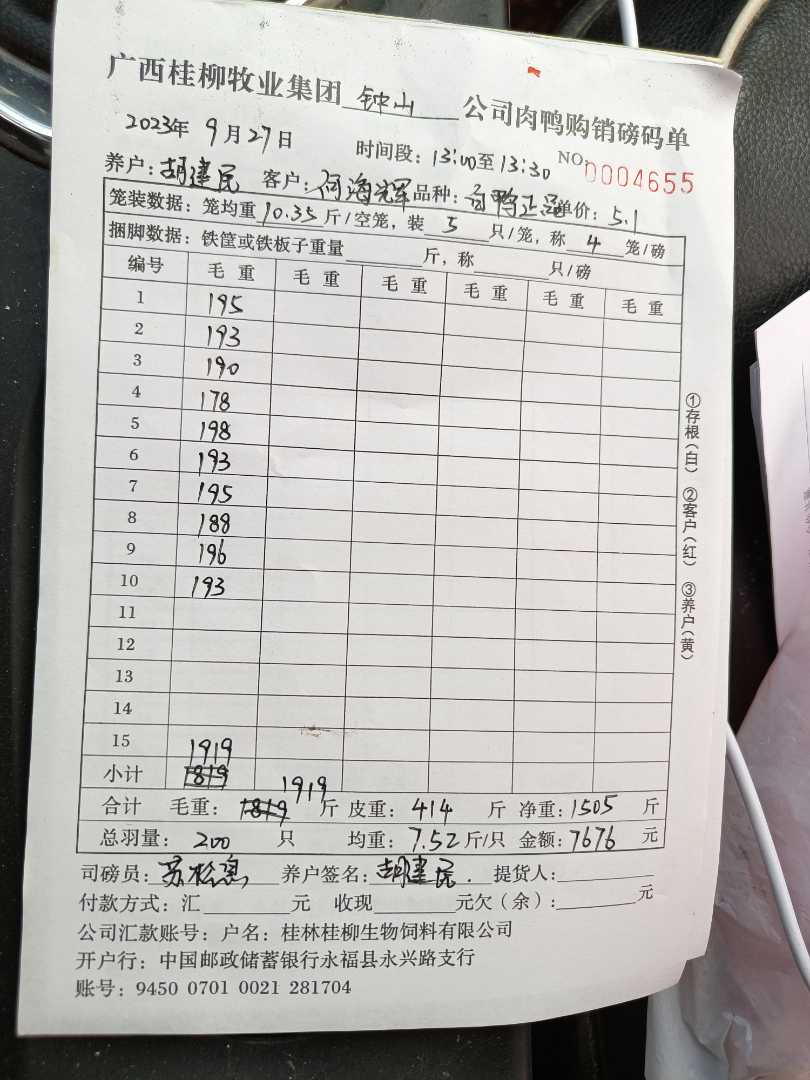 广西桂柳牧业集团 钟山 公司肉鸭购销磅码单
2023年 9月27日 时间段：13:00至13:30 NO：0004655
养户：胡建民 客户：何海辉 品种：白鸭正品 单价：5.1
笼装数据：笼均重 10.35 斤/空笼，装 5 只/笼，称 4 笼/磅
捆脚数据：铁筐或铁板子重量 斤，称 只/磅
编号 毛重 毛重 毛重 毛重 毛重 毛重
1 195
2 193
3 190
4 178
5 198
6 193
7 195
8 188
9 196
10 193
11
12
13
14
15
1919
小计 1819 1919
合计 毛重：1819 斤 皮重：414 斤 净重：1505 斤
总羽量：200 只 均重：7.52斤/只 金额：7676 元
司磅员： 养户签名：胡建民. 提货人：
付款方式：汇 元 收现 元欠（余）： 元
公司汇款账号：户名：桂林桂柳生物饲料有限公司
开户行：中国邮政储蓄银行永福县永兴路支行
账号：9450 0701 0021 281704
①存根(白) ②客户(红) ③养户(黄)